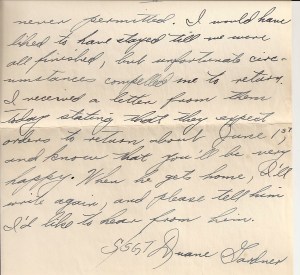 never permitted. I would have
liked to have stayed till we were
all finished, but unfortunate circ-
umstances compelled me to return.
I received a letter from them
today stating that they expect
orders to return about June 1st
and know that you'll be very
happy. When he gets home, I'll
write again, and please tell him
I'd like to hear from him.
S/SGT Duane Gardner